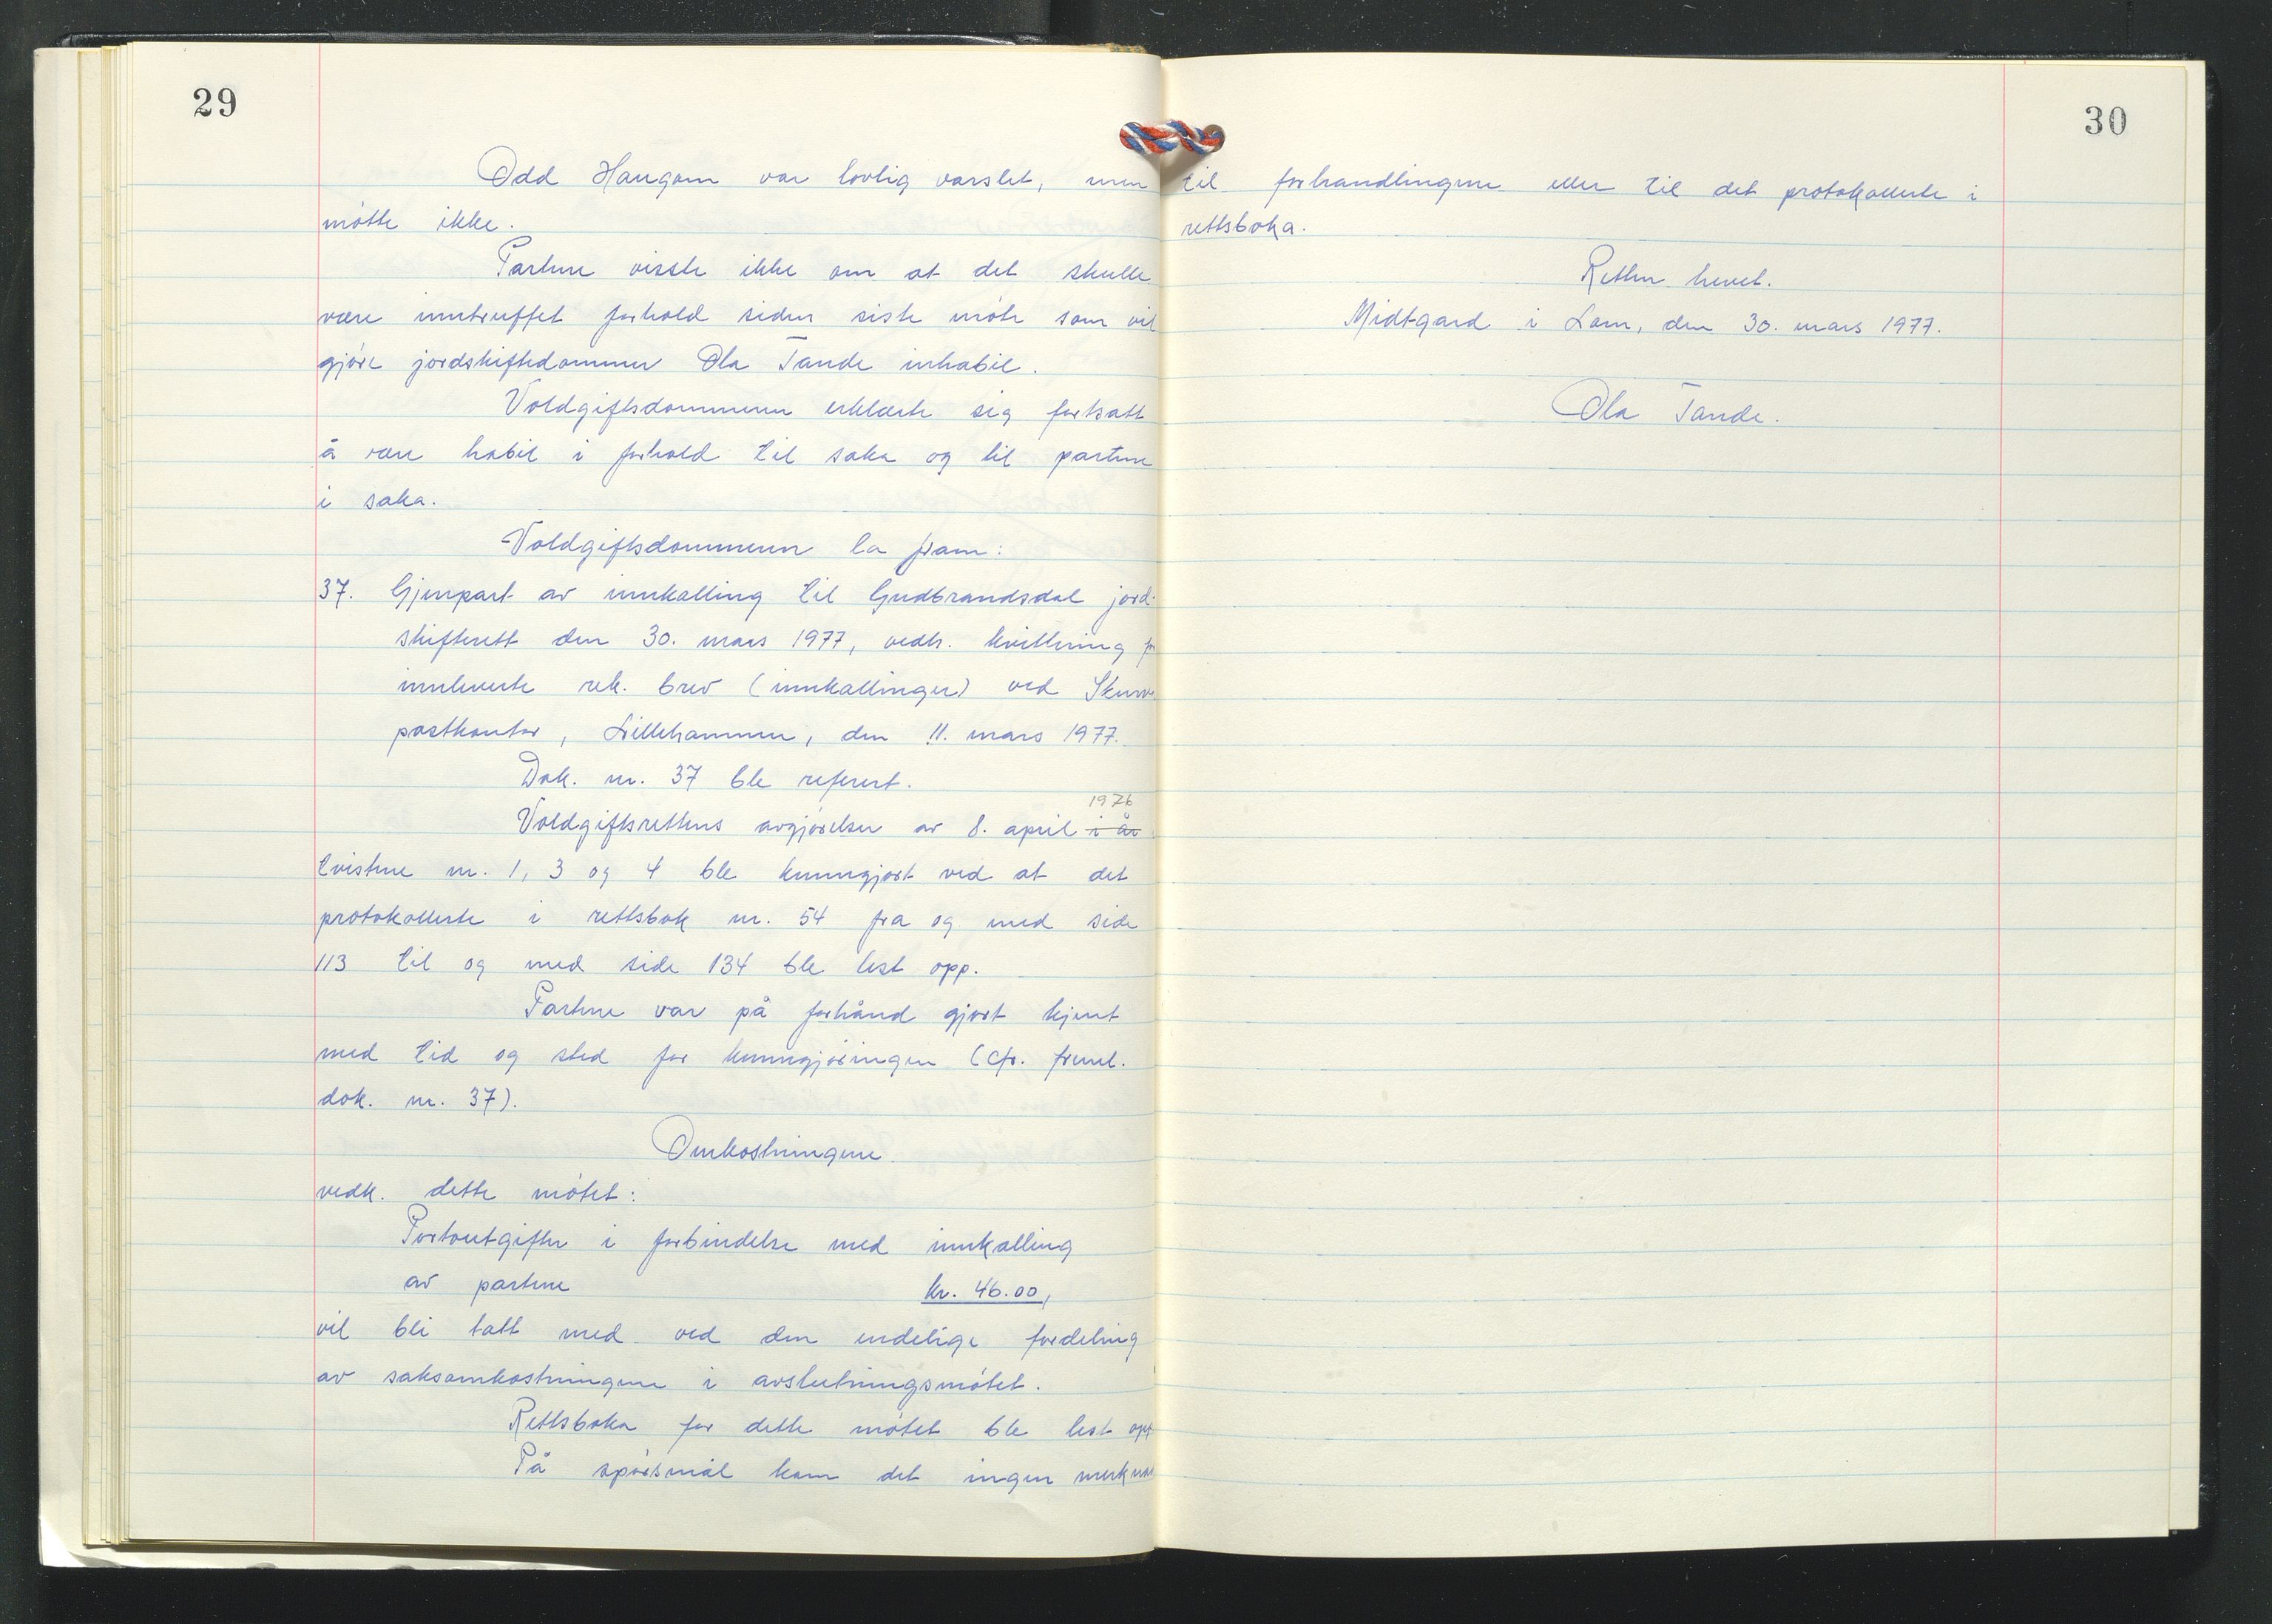 29
Odd Haugom var lovlig varslet, men
møtte ikke.
Partene visste ikke om at det skulle
være inntruffet forhold siden siste møte som vil
gjøre jordskiftedommer Ola Tande inhabil.
Voldgiftsdommeren erklærte seg fortsatt
å være habil i forhold til saka og til partene
i saka.
Voldgiftsdommeren la fram:
37. Gjenpart av innkalling til Gudbrandsdal jord-
skifterett den 30. mars 1977, vedh. kvittering for
innleverte rek. brev (innkallinger) ved Skurva
postkontor, Lillehammer, den 11. mars 1977.
Dok. nr. 37 ble referert.
1976
Voldgiftsrettens avgjørelser av 8. april i år
tvistene nr. 1, 3 og 4 ble kunngjort ved at det
protokollerte i rettsbok nr. 54 fra og med side
113 til og med side 134 ble lest opp.
Partene var på forhånd gjort kjent
med tid og sted for kunngjøringen (cfr. freml.
dok. nr. 37).
Omkostningene
vedk. dette møtet:
Portoutgifter i forbindelse med innkalling
av partene kr. 46.00,
vil bli tatt med ved den endelige fordeling
av saksomkostningene i avslutningsmøtet.
Rettsboka for dette møtet ble lest opp
På spørsmål kom det ingen merknad
30
til forhandlingene eller til det protokollerte i
rettsboka.
Retten hevet.
Midtgard i Lom, den 30. mars 1977.
Ola Tande.